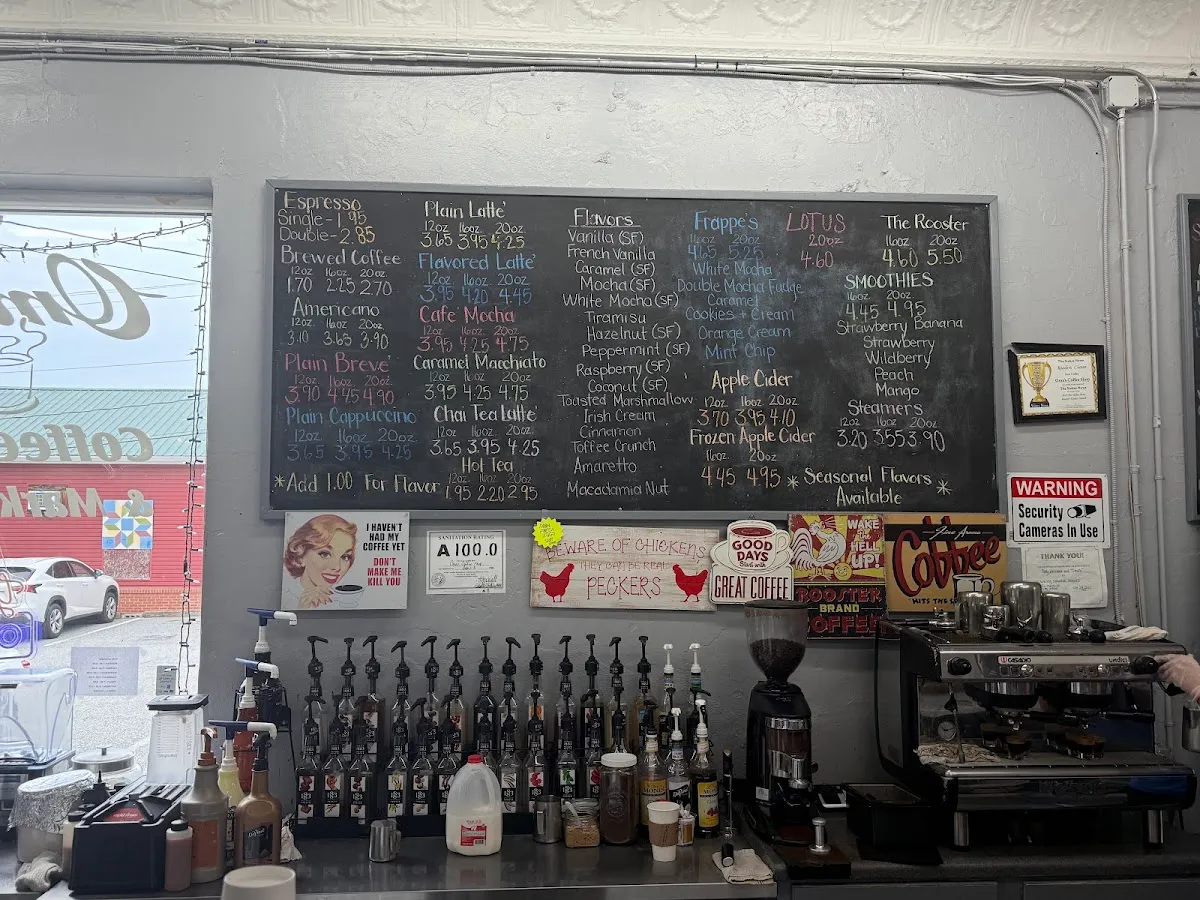 Espresso
Single - 1.95
Double - 2.85
Brewed Coffee
12oz 16oz 20oz
1.70 2.25 2.70
Americano
12oz 16oz 20oz
3.10 3.65 3.90
Plain Breve'
12oz 16oz 20oz
3.90 4.75 4.90
Plain Cappuccino
12oz 16oz 20oz
3.65 3.95 4.25
*Add 1.00 For Flavor
Plain Latte'
12oz 16oz 20oz
3.65 3.95 4.25
Flavored Latte'
12oz 16oz 20oz
3.95 4.20 4.45
Cafe' Mocha
12oz 16oz 20oz
3.95 4.25 4.75
Caramel Macchiato
12oz 16oz 20oz
3.95 4.25 4.75
Chai Tea Latte'
12oz 16oz 20oz
3.65 3.95 4.25
Hot Tea
12oz 16oz 20oz
1.95 2.20 2.95
Flavors
Vanilla (SF)
French Vanilla
Caramel (SF)
Mocha (SF)
White Mocha (SF)
Tiramisu
Hazelnut (SF)
Peppermint (SF)
Raspberry (SF)
Coconut (SF)
Toasted Marshmallow
Irish Cream
Cinnamon
Toffee Crunch
Amaretto
Macadamia Nut
Frappe's
16oz 20oz
4.65 5.25
White Mocha
Double Mocha Fudge
Caramel
Cookies + Cream
Orange Cream
Mint Chip
Apple Cider
12oz 16oz 20oz
3.70 3.95 4.10
Frozen Apple Cider
16oz 20oz
4.45 4.95
LOTUS
20oz
4.60
The Rooster
16oz 20oz
4.60 5.50
SMOOTHIES
16oz 20oz
4.45 4.95
Strawberry Banana
Strawberry
Wildberry
Peach
Mango
Steamers
12oz 16oz 20oz
3.20 3.55 3.90
*Seasonal Flavors*
Available
Coffee
& Mark
I HAVEN'T
HAD MY
COFFEE YET
DON'T
MAKE ME
KILL YOU
SANITATION RATING
A 100.0
BEWARE OF CHICKENS
THEY CAN BE REAL
PECKERS
GOOD
DAYS
Start with
GREAT COFFEE
WAKE
THE
HELL
UP!
ROOSTER
BRAND
COFFEE
Coffee
HITS THE
WARNING
Security
Cameras In Use
THANK YOU!
CASADIO
undici